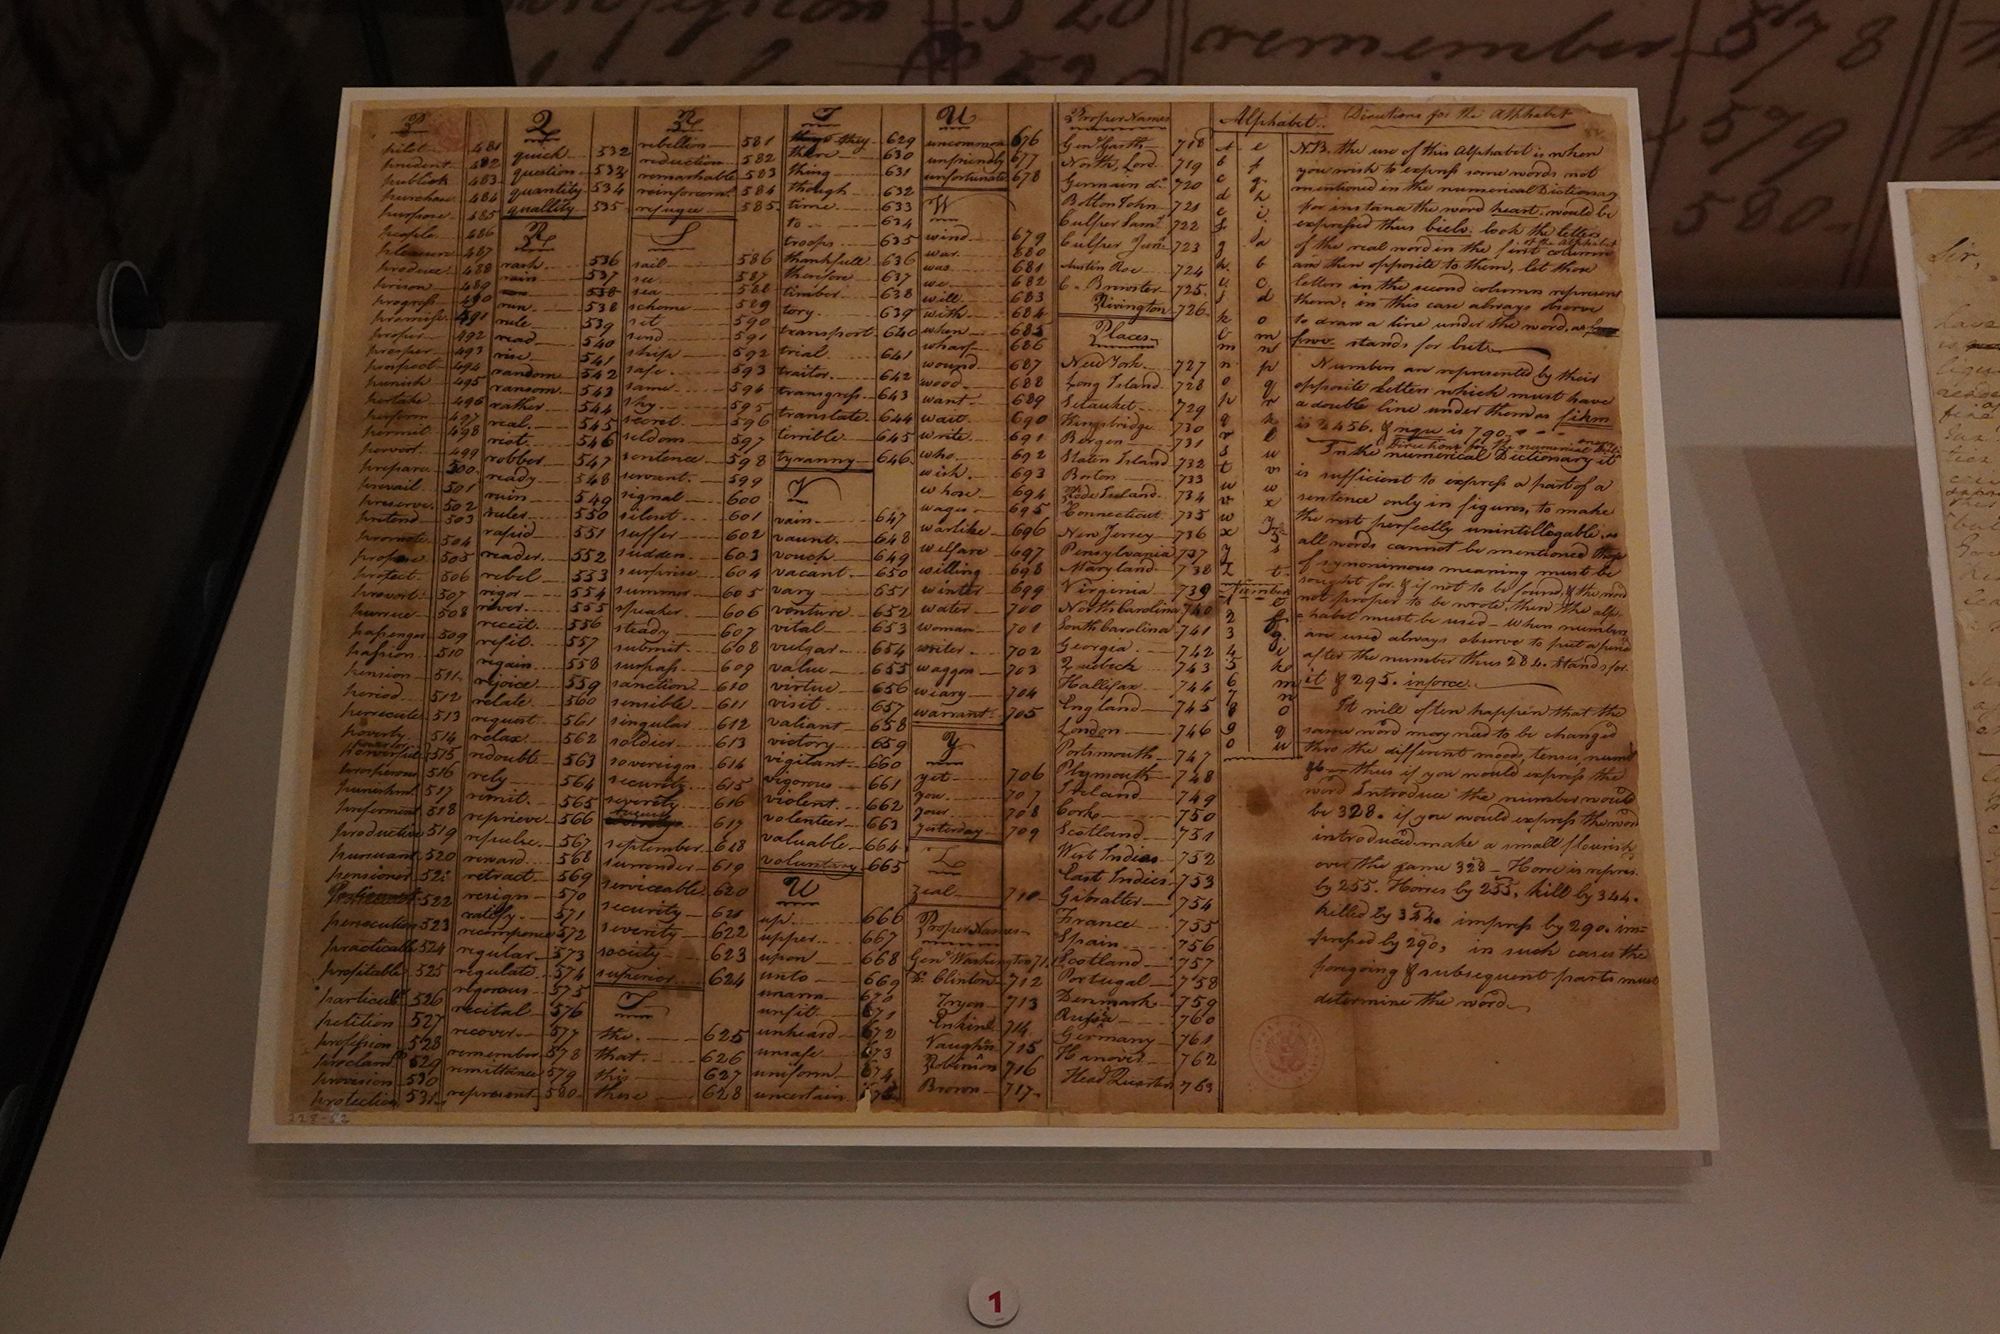 520
remember 578
579
580
P
pilot 481
prudent 482
publish 483
purchase 484
purpose 485
people 486
pleasure 487
produce 488
prison 489
progress 490
promise 491
proper 492
prosper 493
prospect 494
punish 495
partake 496
perform 497
permit 498
pervert 499
prepare 500
prevail 501
preserve 502
pretend 503
promote 504
propose 505
protect 506
provost 507
pursue 508
passenger 509
passion 510
pension 511
period 512
persecute 513
poverty 514
powerful 515
prosperous 516
punishmt 517
preferment 518
productive 519
pursuant 520
pensioner 521
522
persecution 523
practicable 524
profitable 525
particular 526
petition 527
profession 528
proclaim 529
provision 530
protection 531
Q
quick 532
question 533
quantity 534
quallity 535
R
rash 536
rain 537
538
run 538
rule 539
read 540
rise 541
random 542
ransom 543
rather 544
real 545
riot 546
robber 547
ready 548
ruin 549
ruler 550
rapid 551
reader 552
rebel 553
rigor 554
river 555
receit 556
refit 557
regain 558
rejoice 559
relate 560
request 561
relax 562
redoubt 563
rely 564
remit 565
reprieve 566
repulse 567
reward 568
retract 569
resign 570
ratify 571
recompence 572
regular 573
regulate 574
rigorous 575
recital 576
recover 577
remember 578
remittance 579
represent 580
R
rebellion 581
reduction 582
remarkable 583
reinforcemt 584
refugee 585
S
sail 586
see 587
sea 588
scheme 589
set 590
send 591
ship 592
safe 593
same 594
sky 595
secret 596
seldom 597
sentence 598
servant 599
signal 600
silent 601
suffer 602
sudden 603
surprise 604
summer 605
speaker 606
steady 607
submit 608
surpass 609
sanction 610
sensible 611
singular 612
soldier 613
sovereign 614
security 615
severity 616
617
september 618
surrender 619
serviceable 620
security 621
severity 622
society 623
superior 624
T
the 625
that 626
this 627
these 628
T
they 629
there 630
thing 631
though 632
time 633
to 634
troops 635
thankfull 636
therefore 637
timber 638
tory 639
transport 640
trial 641
traitor 642
transgress 643
translate 644
terrible 645
tyranny 646
V
vain 647
vaunt 648
vouch 649
vacant 650
vary 651
venture 652
vital 653
vulgar 654
value 655
virtue 656
visit 657
valiant 658
victory 659
vigilant 660
vigorous 661
violent 662
volenteer 663
valuable 664
voluntary 665
U
up 666
upper 667
upon 668
unto 669
unarm 670
unfit 671
unheard 672
unsafe 673
uniform 674
uncertain 675
U
uncommon 676
unfriendly 677
unfortunate 678
W
wind 679
war 680
was 681
we 682
will 683
with 684
when 685
wharf 686
wound 687
wood 688
want 689
wait 690
write 691
who 692
wish 693
whose 694
wages 695
warlike 696
welfare 697
willing 698
winter 699
water 700
woman 701
writer 702
waggon 703
weary 704
warrant 705
Y
yet 706
you 707
your 708
yesterday 709
Z
zeal 710
Proper Names
Genl Washington 711
Do Clinton 712
Tryon 713
Erskine 714
Vaughn 715
Robinson 716
Brown 717
Proper Names
Genl Garth 718
North, Lord 719
Germain do 720
Bolton John 721
Culper Saml 722
Culper Junr 723
Austin Roe 724
C. Brewster 725
Rivington 726
Places
New York 727
Long Island 728
Setauket 729
Kingsbridge 730
Bergen 731
Staten Island 732
Boston 733
Rode Island 734
Connecticut 735
New Jersey 736
Pensylvania 737
Maryland 738
Virginia 739
North Carolina 740
South Carolina 741
Georgia 742
Quebeck 743
Hallifax 744
England 745
London 746
Portsmouth 747
Plymouth 748
Ireland 749
Cork 750
Scotland 751
West Indies 752
East Indies 753
Gibralter 754
France 755
Spain 756
Scotland 757
Portugal 758
Denmark 759
Russia 760
Germany 761
Hanover 762
Head Quarters 763
Alphabet
a e
b f
c g
d h
e i
f j
g a
h b
i c
j d
k o
l m
m n
n p
o q
p r
q k
r l
s u
t v
u w
v x
w y
x z
y s
z t
Numbers
1 e
2 f
3 g
4 i
5 k
6 m
7 n
8 o
9 q
0 u
Directions for the Alphabet
N.B. the use of this Alphabet is when
you wish to express some words not
mentioned in the numerical Dictionary
for instance the word heart. would be
expressed thus biels. look the letters
of the real word in the first column of the Alphabet
are then opposite to them, let those
letters in the second columns represent
them; in this case always observe
to draw a line under the word, as
fwv stands for but
Numbers are represented by their
opposite letters which must have
a double line under them as fikm
is 2456. & nqu is 790.
Directions for the numerical Dict
In the numerical Dictionary it
is sufficient to express a part of a
sentence only in figures, to make
the rest perfectly unintellegable, as
all words cannot be mentioned those
of synonimous meaning must be
sought for. & if not to be found, & the word
not proper to be wrote, then the alp.
habit must be used – when numbers
are used always observe to put a period
after the number thus 284. stands for
it & 295. inforce
It will often happen that the
same word may need to be changed
thro the different moods, tenses, numb
thus if you would express the
word introduce the number would
be 328. if you would express the word
introduced make a small flourish
over the same 328 – Horse is repres
by 255. Horses by 255, kill by 344.
killed by 344. impress by 290. im-
pressed by 290, in such cases the
foregoing & subsequent parts must
determine the word
Sir,
1